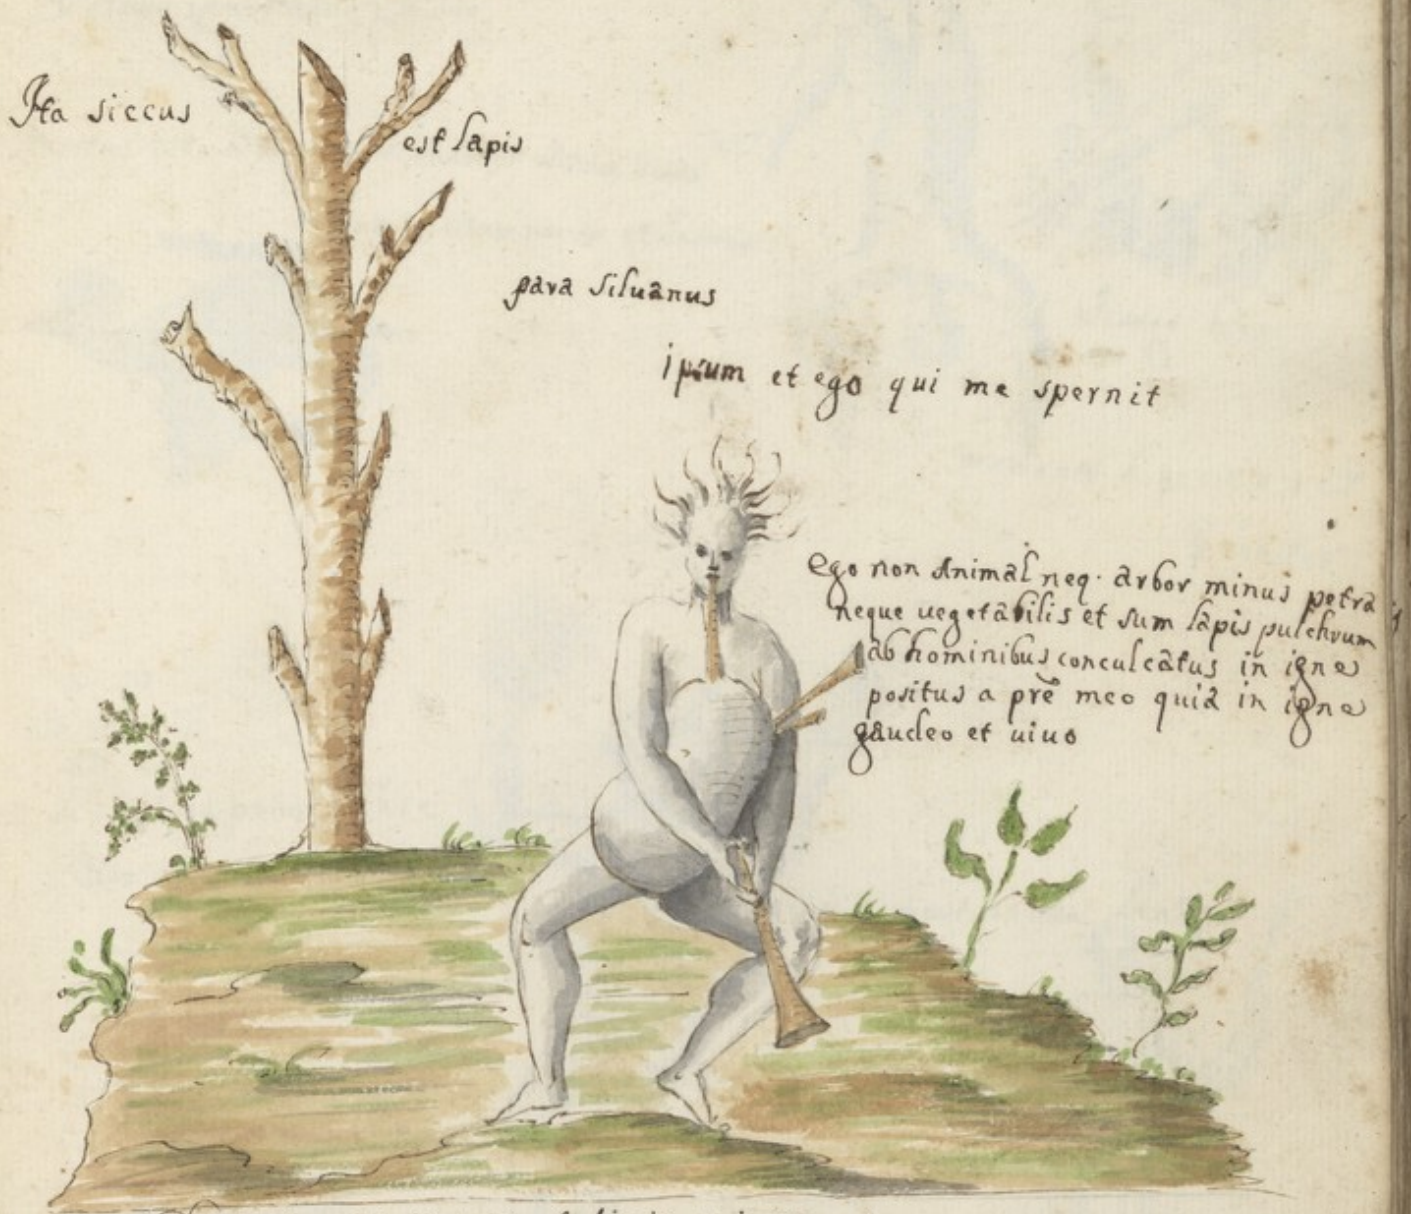 Ita siccus
est lapis
para siluanus
ipsum et ego qui me spernit
Ego non Animal neq. arbor minus petra
neque uegetabilis et sum lapis pulchrum
ab hominibus conculcatus in igne
positus a prē meo quia in igne
gaudeo et uiuo